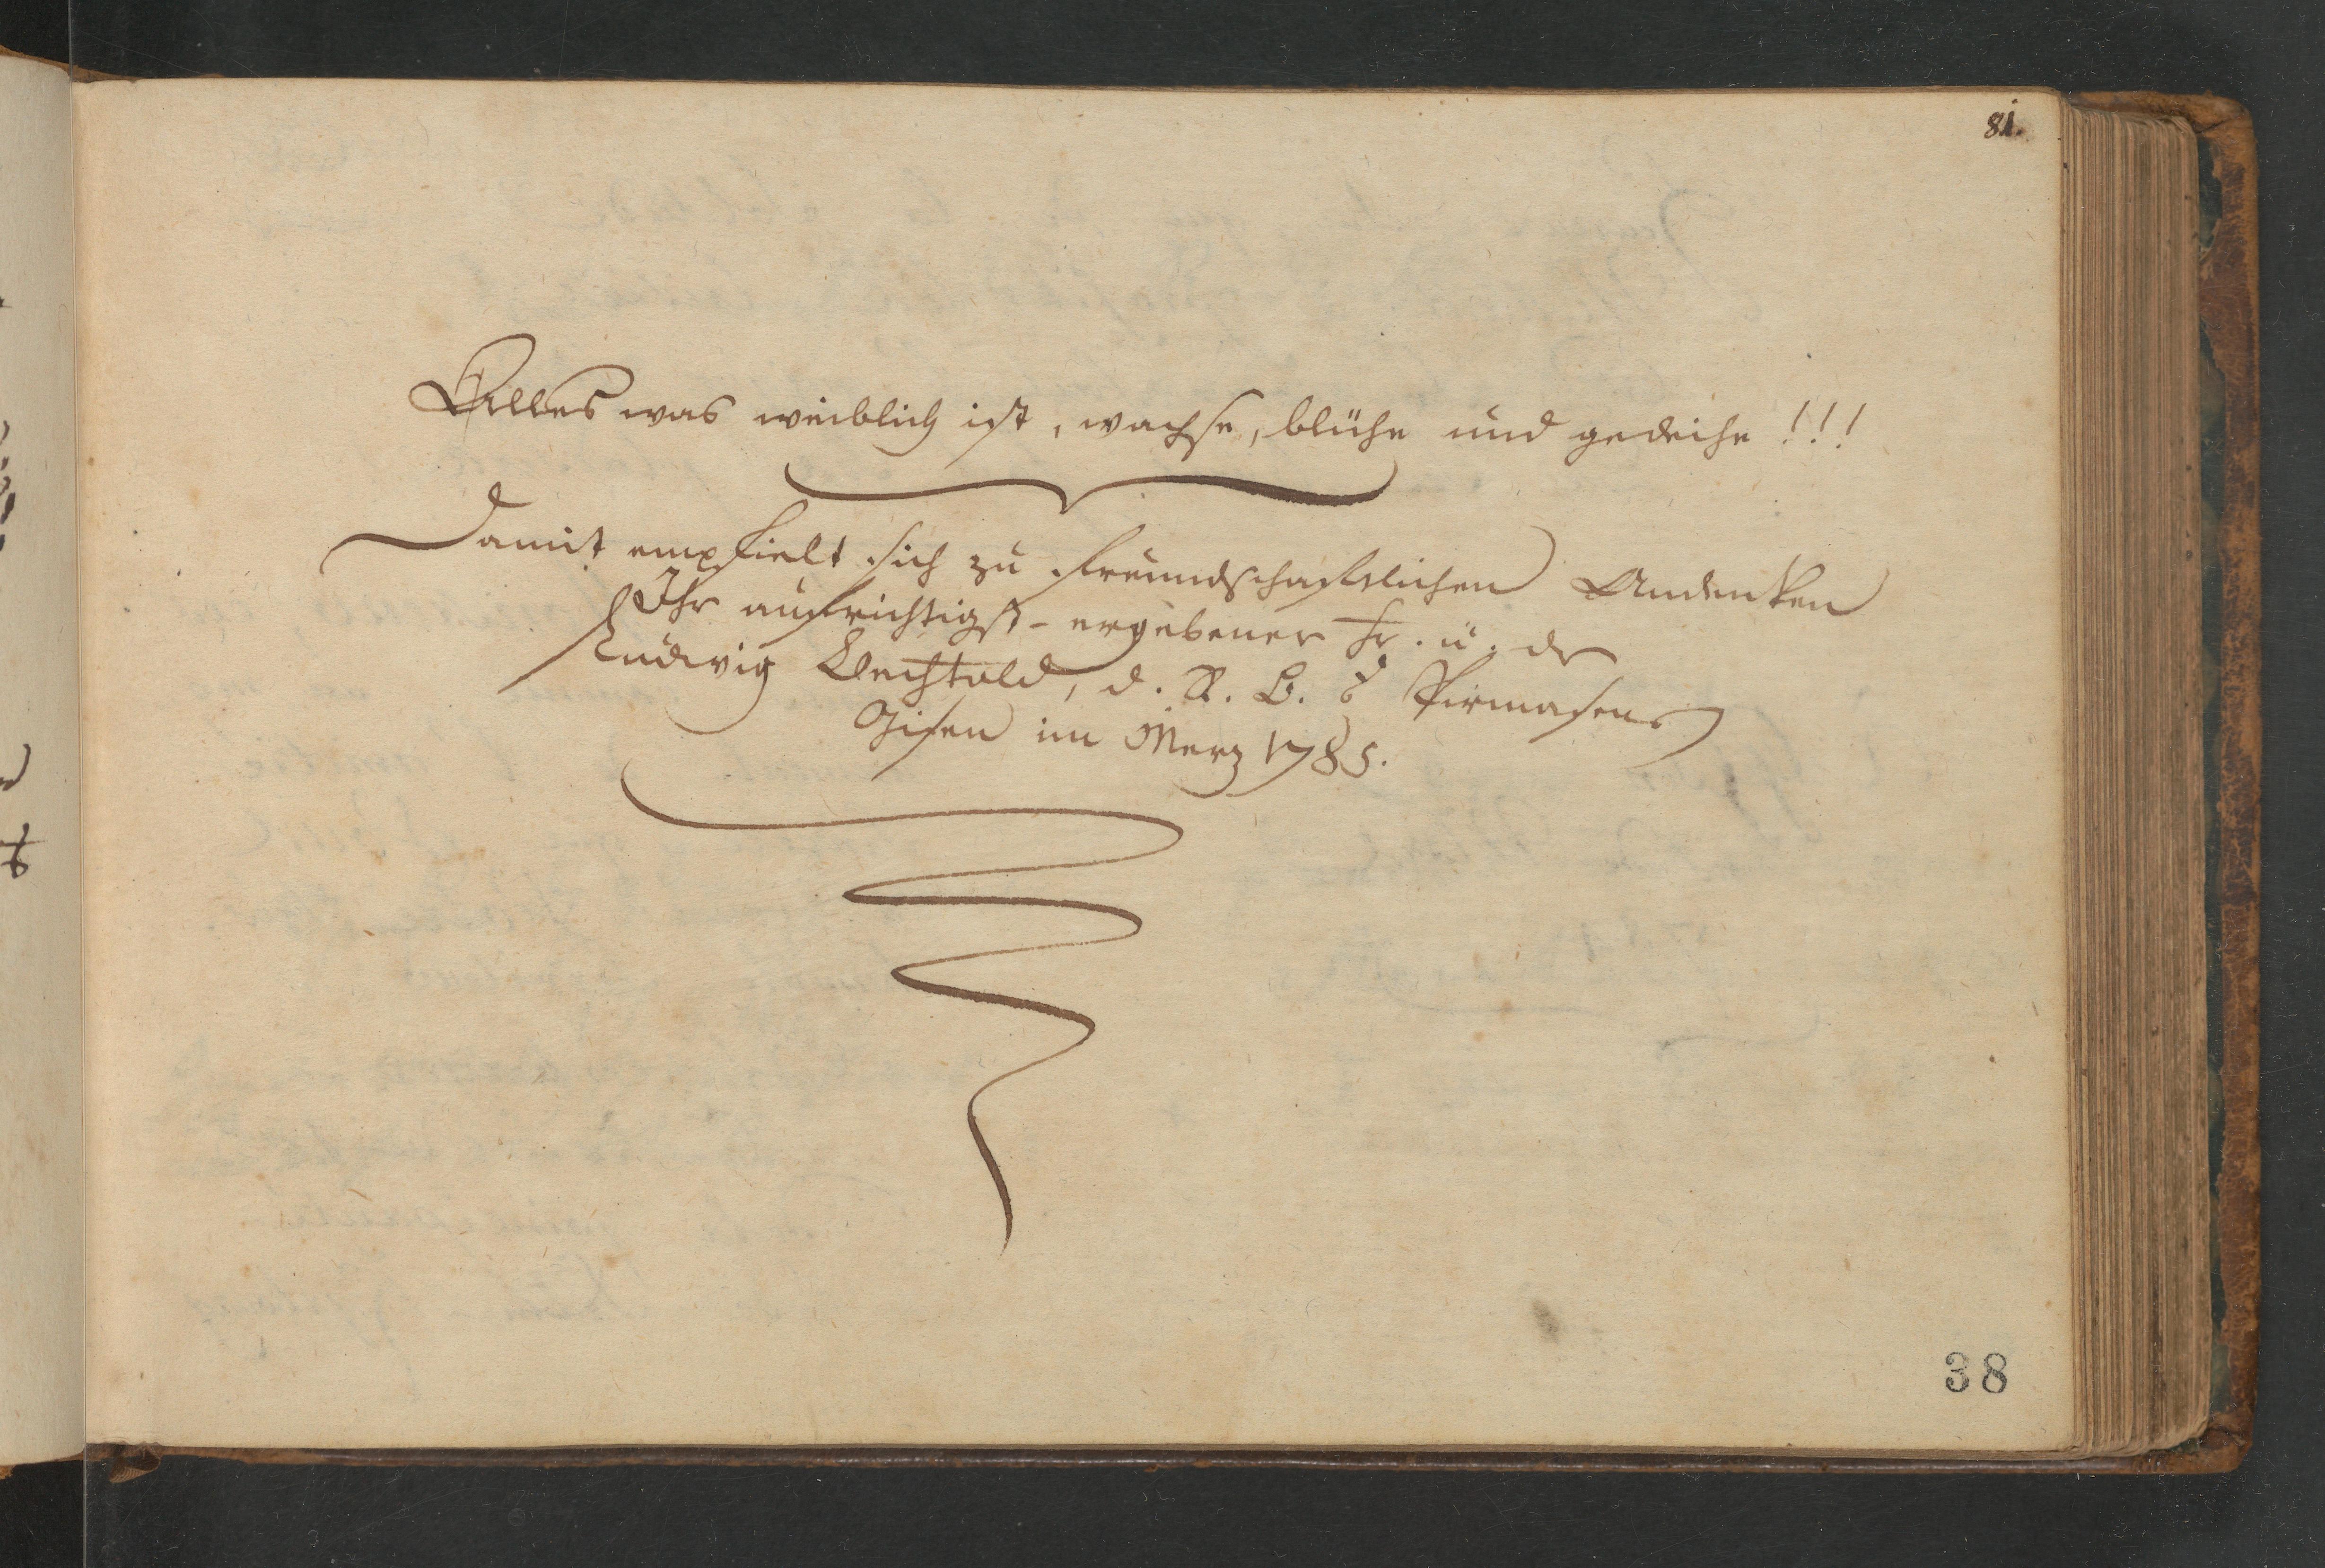 81.
Alles was weiblich ist, wachse, blühe und gedeihe!!!
Damit empfielt sich zu freundschaftlichen Andenken
Ihr aufrichtigst-ergebener Fr. u. dr
Ludwig Bechtold, d. R. B. Pirmasens
Gisen im Merz 1785.
38